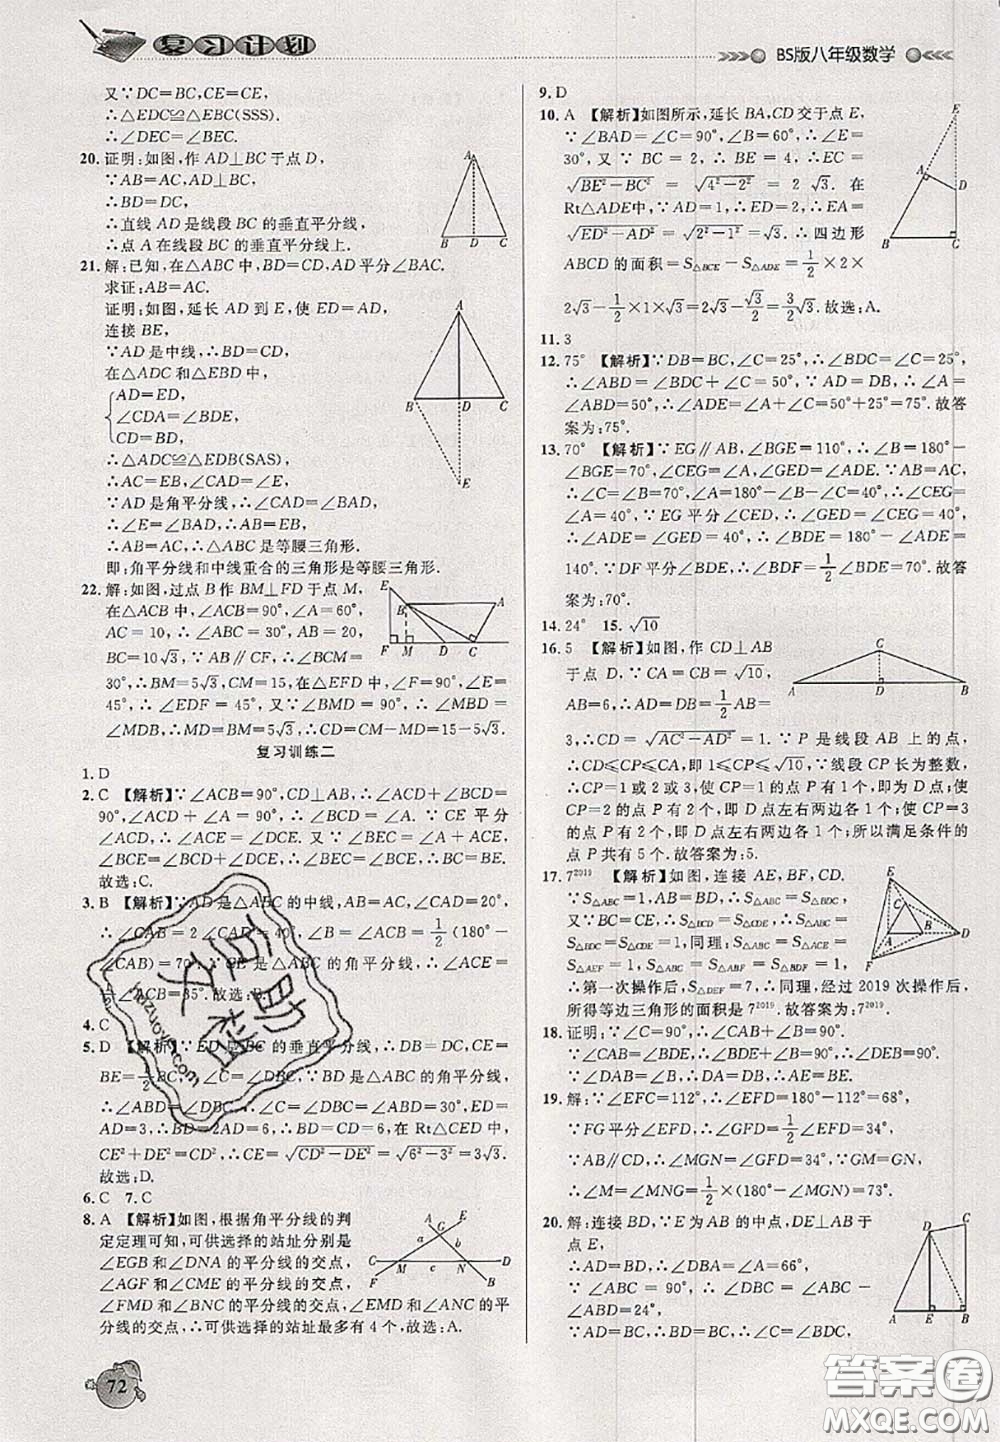 复习计划
BS版八年级数学
又∵DC=BC,CE=CE,
∴△EDC≌△EBC(SSS).
∴∠DEC=∠BEC.
20.证明:如图,作AD⊥BC于点D,
∵AB=AC,AD⊥BC,
∴BD=DC,
∴直线AD是线段BC的垂直平分线,
∴点A在线段BC的垂直平分线上.
A
B D C
21.解:已知,在△ABC中,BD=CD,AD平分∠BAC.
求证:AB=AC.
证明:如图,延长AD到E,使ED=AD,
连接BE,
∵AD是中线,∴BD=CD,
在△ADC和△EBD中,
AD=ED,
∠CDA=∠BDE,
CD=BD,
∴△ADC≌△EDB(SAS).
∴AC=EB,∠CAD=∠E,
∵AD是角平分线,∴∠CAD=∠BAD,
∴∠E=∠BAD,∴AB=EB,
∴AB=AC,∴△ABC是等腰三角形.
即:角平分线和中线重合的三角形是等腰三角形.
A
B D C
E
22.解:如图,过点B作BM⊥FD于点M,
在△ACB中,∠ACB=90°,∠A=60°,
AC=10,∴∠ABC=30°,
BC=10√3,∵AB∥CF,∴∠BCM=
30°,∴BM=5√3,CM=15,在△EFD中,
∠F=90°,∠E=45°,∴∠EDF=45°,又∵∠BMD=90°,∴∠MBD=
∠MDB,∴MD=BM=5√3,∴CD=CM-MD=15-5√3.
E
B A
F M D C
复习训练二
1.D
2.C 【解析】∵∠ACB=90°,CD⊥AB,∴∠ACD+∠BCD=
90°,∠ACD+∠A=90°,∴∠BCD=∠A.∵CE平分
∠ACD,∴∠ACE=∠DCE.又∵∠BEC=∠A+∠ACE,
∠BCE=∠BCD+∠DCE,∴∠BEC=∠BCE,∴BC=BE.
故选:C.
3.B 【解析】∵AD是△ABC的中线,AB=AC,∠CAD=20°,
∴∠CAB=2∠CAD=40°,∠B=∠ACB=1/2(180°-
∠CAB)=70°.∵CE是△ABC的角平分线,∴∠ACE=
1/2∠ACB=35°.故选:B.
4.C
5.D 【解析】∵ED是BC的垂直平分线,∴DB=DC,CE=
BE=1/2BC,∠ACB=∠DBC,∵BD是△ABC的角平分线,
∴∠ABD=∠DBC,∴∠C=∠DBC=∠ABD=30°,∴BD
=2AD=6,∴CD=6,∴CD=BD=6,在Rt△CED中,
CE²+DE²=CD²,∴CE=√(CD²-DE²)=√(6²-3²)=3√3.
故选:D.
6.C 7.C
8.A 【解析】如图,根据角平分线的判
定定理可知,可供选择的站址分别是
∠EGB和∠DNA的平分线的交点,
∠AGF和∠CME的平分线的交点,
∠FMD和∠BNC的平分线的交点,∠EMD和∠ANC的平
分线的交点,∴可供选择的站址最多有4个.故选:A.
A E
G
a b
C M c N D
F B
9.D
10.A 【解析】如图所示,延长BA,CD交于点E,
∵∠BAD=∠C=90°,∠B=60°,∴∠E=
30°,又∵BC=2,∴BE=4,∴EC=
√(BE²-BC²)=√(4²-2²)=2√3.在
Rt△ADE中,∵AD=1,∴DE=2,∴EA=
√(ED²-AD²)=√(2²-1²)=√3.∴四边形
ABCD的面积=S△BCE-S△ADE=1/2×2×
2√3-1/2×1×√3=2√3-√3/2=3/2√3.故选:A.
E
A D
B C
11.3
12.75° 【解析】∵DB=BC,∠C=25°,∴∠BDC=∠C=25°,
∴∠ABD=∠BDC+∠C=50°.∵AD=DB,∴∠A=
∠ABD=50°,∴∠ADE=∠A+∠C=50°+25°=75°.故答
案为:75°.
13.70° 【解析】∵EG∥AB,∠BGE=110°,∴∠B=180°-
∠BGE=70°,∠CEG=∠A,∠GED=∠ADE.∵AB=AC,
∴∠C=∠B=70°,∠A=180°-∠B-∠C=40°,∴∠CEG
=∠A=40°,∵EG平分∠CED,∴∠GED=∠CEG=40°,
∴∠ADE=∠GED=40°,∴∠BDE=180°-∠ADE=
140°.∵DF平分∠BDE,∴∠FDE=1/2∠BDE=70°.故答
案为:70°.
14.24° 15.√10
16.5 【解析】如图,作CD⊥AB
于点D,∵CA=CB=√10,
AB=6,∴AD=BD=1/2AB=
3,∴CD=√(AC²-AD²)=1.∵P是线段AB上一点,
∴CD≤CP≤CA,即1≤CP≤√10,∵线段CP长为整数,
∴CP=1或2或3;当CP=1时,CP⊥AB的点P有1个;
使CP=2的点P有2个,即D点左右两边各1个;使CP=3
的点P有2个,即D点左右两边各1个;所以满足条件的
点P共有5个.故答案为:5.
C
A D B
17.7²⁰¹⁹ 【解析】如图,连接AE,BF,CD.
∵S△ABC=1,AB=BD,∴S△ABC=S△BDC,
又∵BC=CE,∴S△BCD=S△CDE=1,∴
S△BDC=S△CDE=1,同理:S△ACE=
S△AEF=1,S△ABF=S△BDF=1,∴S△DEF=7,
∴第一次操作后,S△DEF=7,同理,经过2019次操作后,
所得等边三角形的面积是7²⁰¹⁹.故答案为:7²⁰¹⁹.
E
C
A B D
F
18.证明:∵∠C=90°,∴∠CAB+∠B=90°.
∵∠CAB=∠BDE,∴∠BDE+∠B=90°,∴∠DEB=90°.
∵∠CAD=∠BAD,∴DA平分∠CAB,∴CD=DE.
19.解:∵∠EFC=112°,∴∠EFD=180°-112°=68°,
∵FG平分∠EFD,∴∠GFD=1/2∠EFD=34°,
∵AB∥CD,∴∠MGN=∠GFD=34°,∵MG=NG,
∴∠M=∠MNG=1/2(180°-∠MGN)=73°.
20.解:连接BD,∵E为AB的中点,DE⊥AB于
点E,
∴AD=BD,∴∠DBA=∠A=66°,
∵∠ABC=90°,∴∠DBC=∠ABC-
∠ABD=24°,
∵AD=BC,∴BD=BC,
D C
A E B
72
答案圈
MXQE.COM